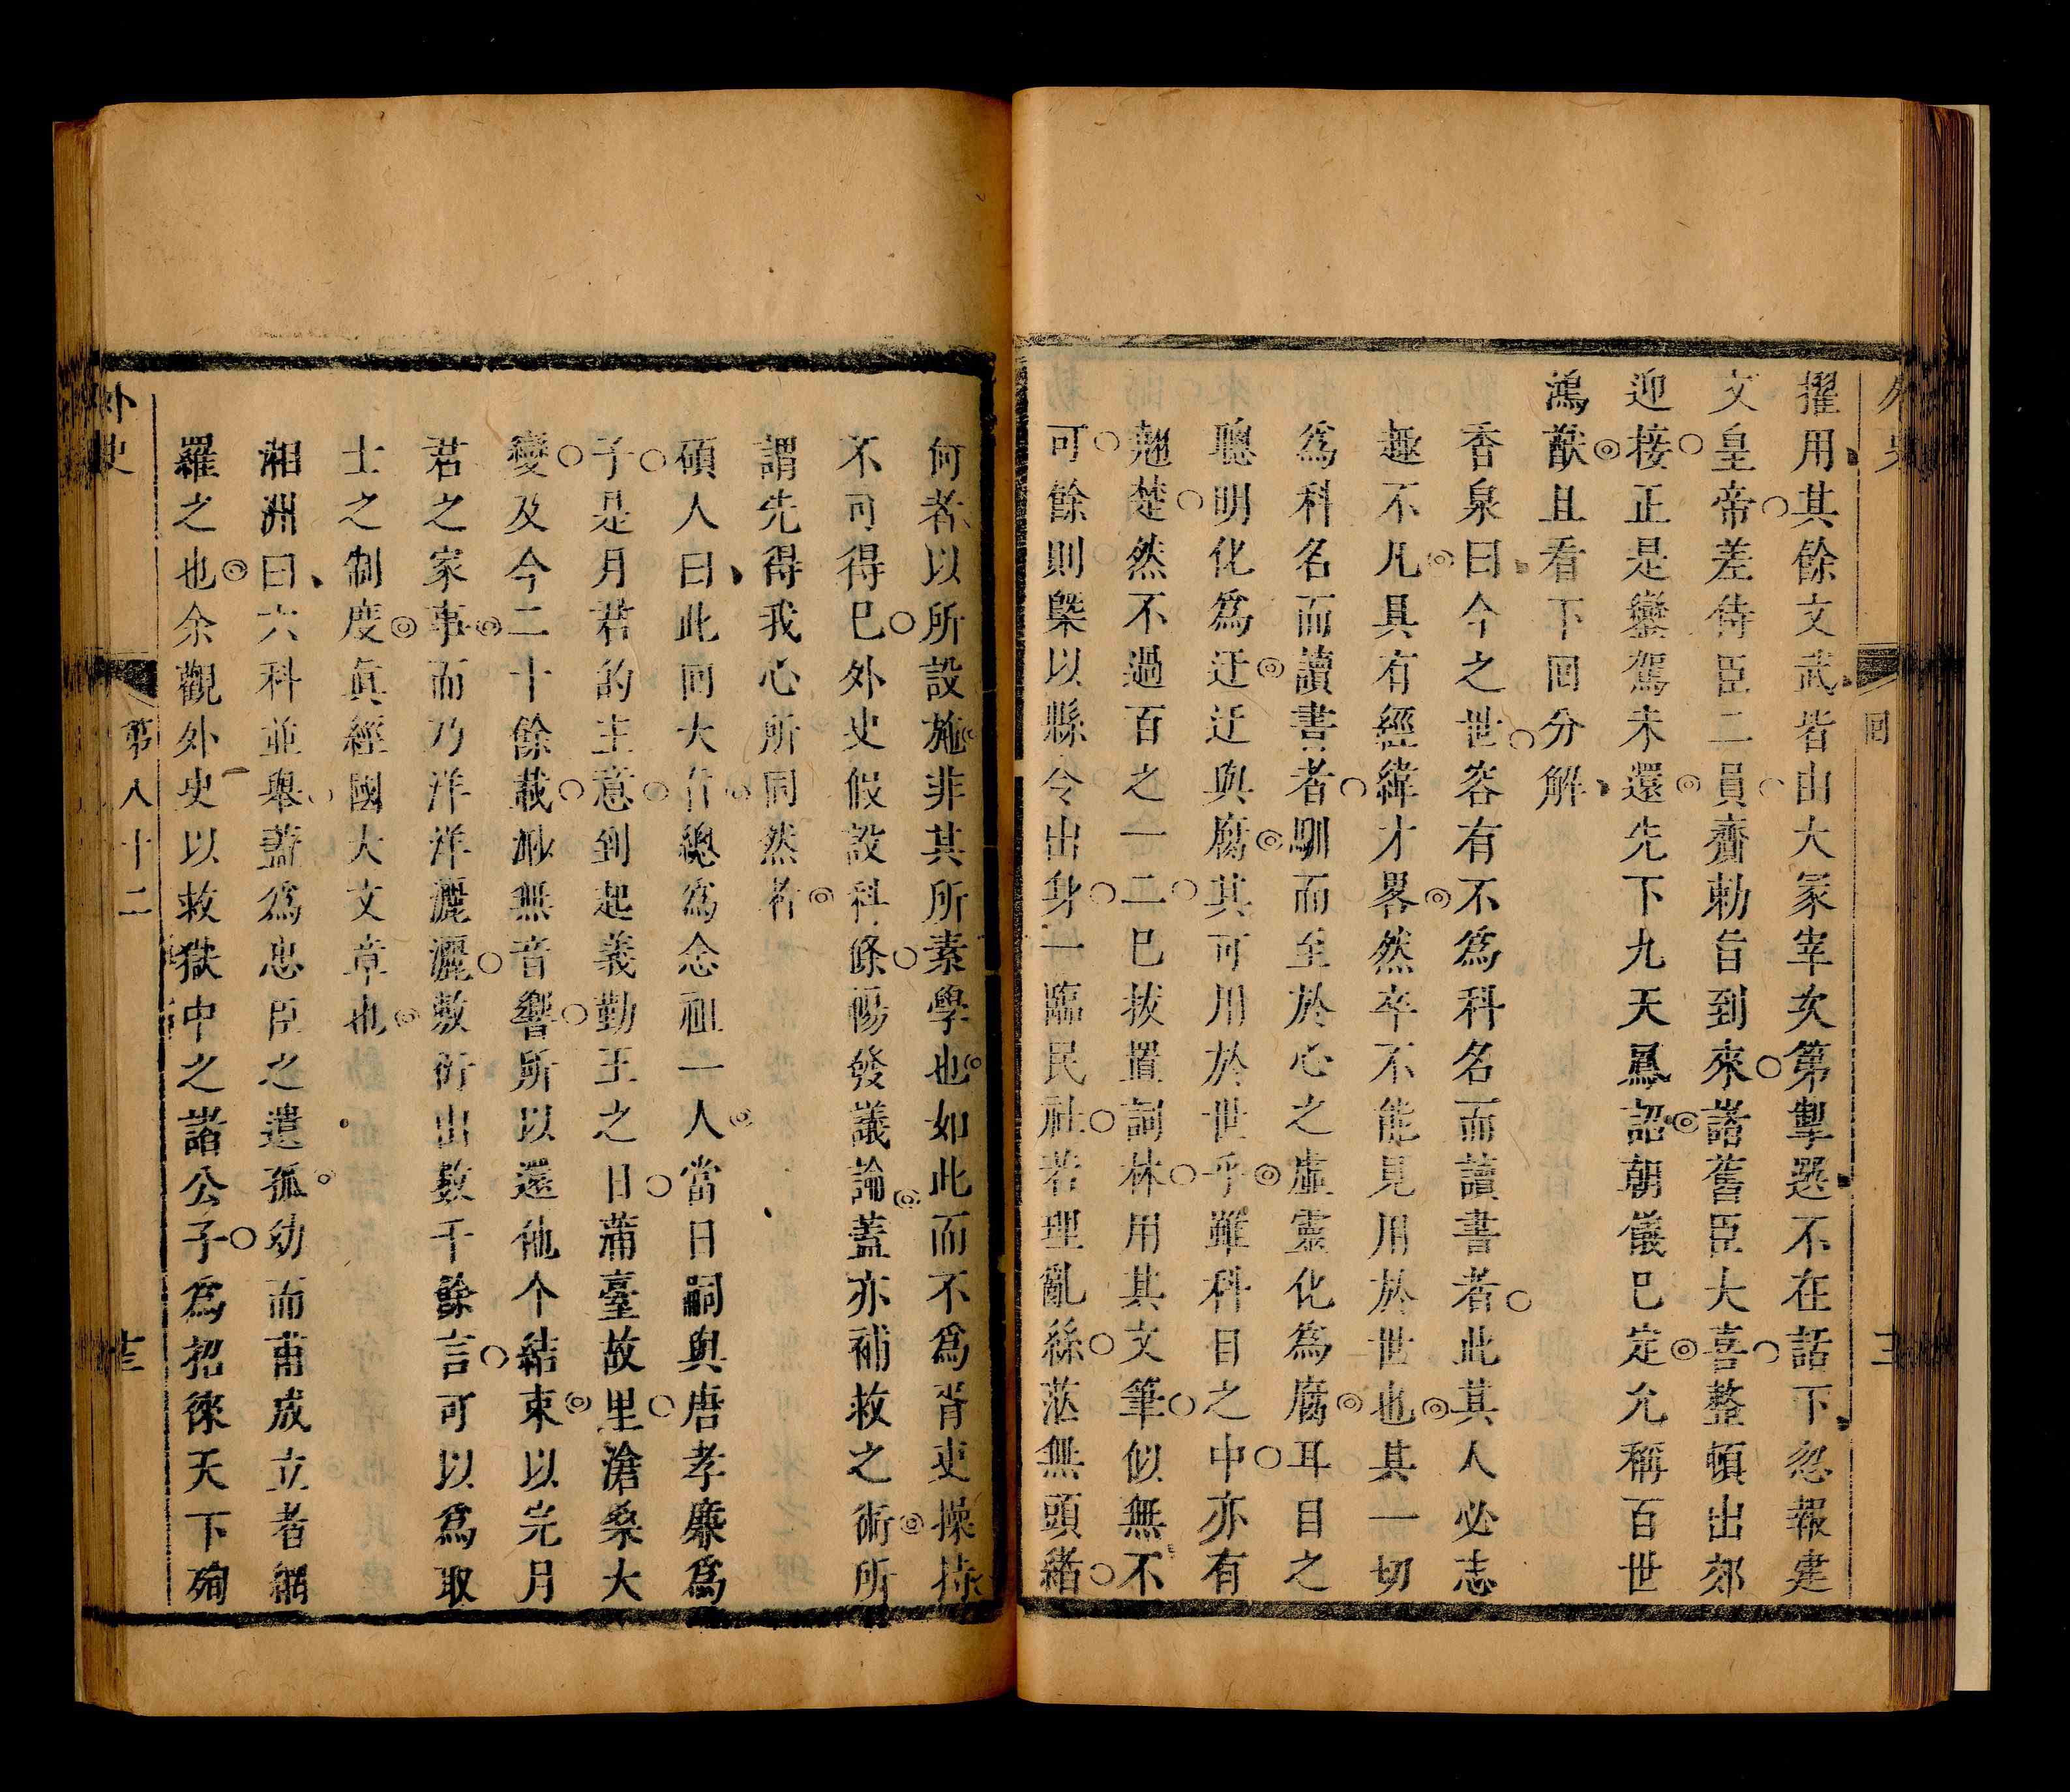 外史
回
擢用其餘文武皆由大冢宰次第掣選不在話下忽報建
文皇帝差侍臣二員齎勅旨到來諸舊臣大喜整頓出郊
迎接正是鑾駕未還先下九天鳳詔朝儀已定允稱百世
鴻猷且看下回分解
香泉曰今之世容有不為科名而讀書者此其人必志
趣不凡具有經緯才畧然卒不能見用於世也其一切
為科名而讀書者馴而至於心之虛靈化為腐耳目之
聰明化為迂迂與腐其可用於世乎雖科目之中亦有
翹楚然不過百之一二已拔置詞林用其文筆似無不
可餘則槩以縣令出身一臨民社若理亂絲茫無頭緒
何者以所設施非其所素學也如此而不為胥吏操持
不可得已外史假設科條暢發議論蓋亦補救之術所
謂先得我心所同然者
碩人曰此回大旨總為念祖一人當日嗣與唐孝廉為
子是月君的主意到起義勤王之日蒲臺故里滄桑大
變及今二十餘載渺無音響所以還他个結束以完月
君之家事而乃洋洋灑灑敷衍出數千餘言可以為取
士之制度真經國大文章也
湘洲曰六科並舉藍為忠臣之遺孤幼而甫成立者網
羅之也余觀外史以救獄中之諸公子為招徠天下殉
外史
第八十二